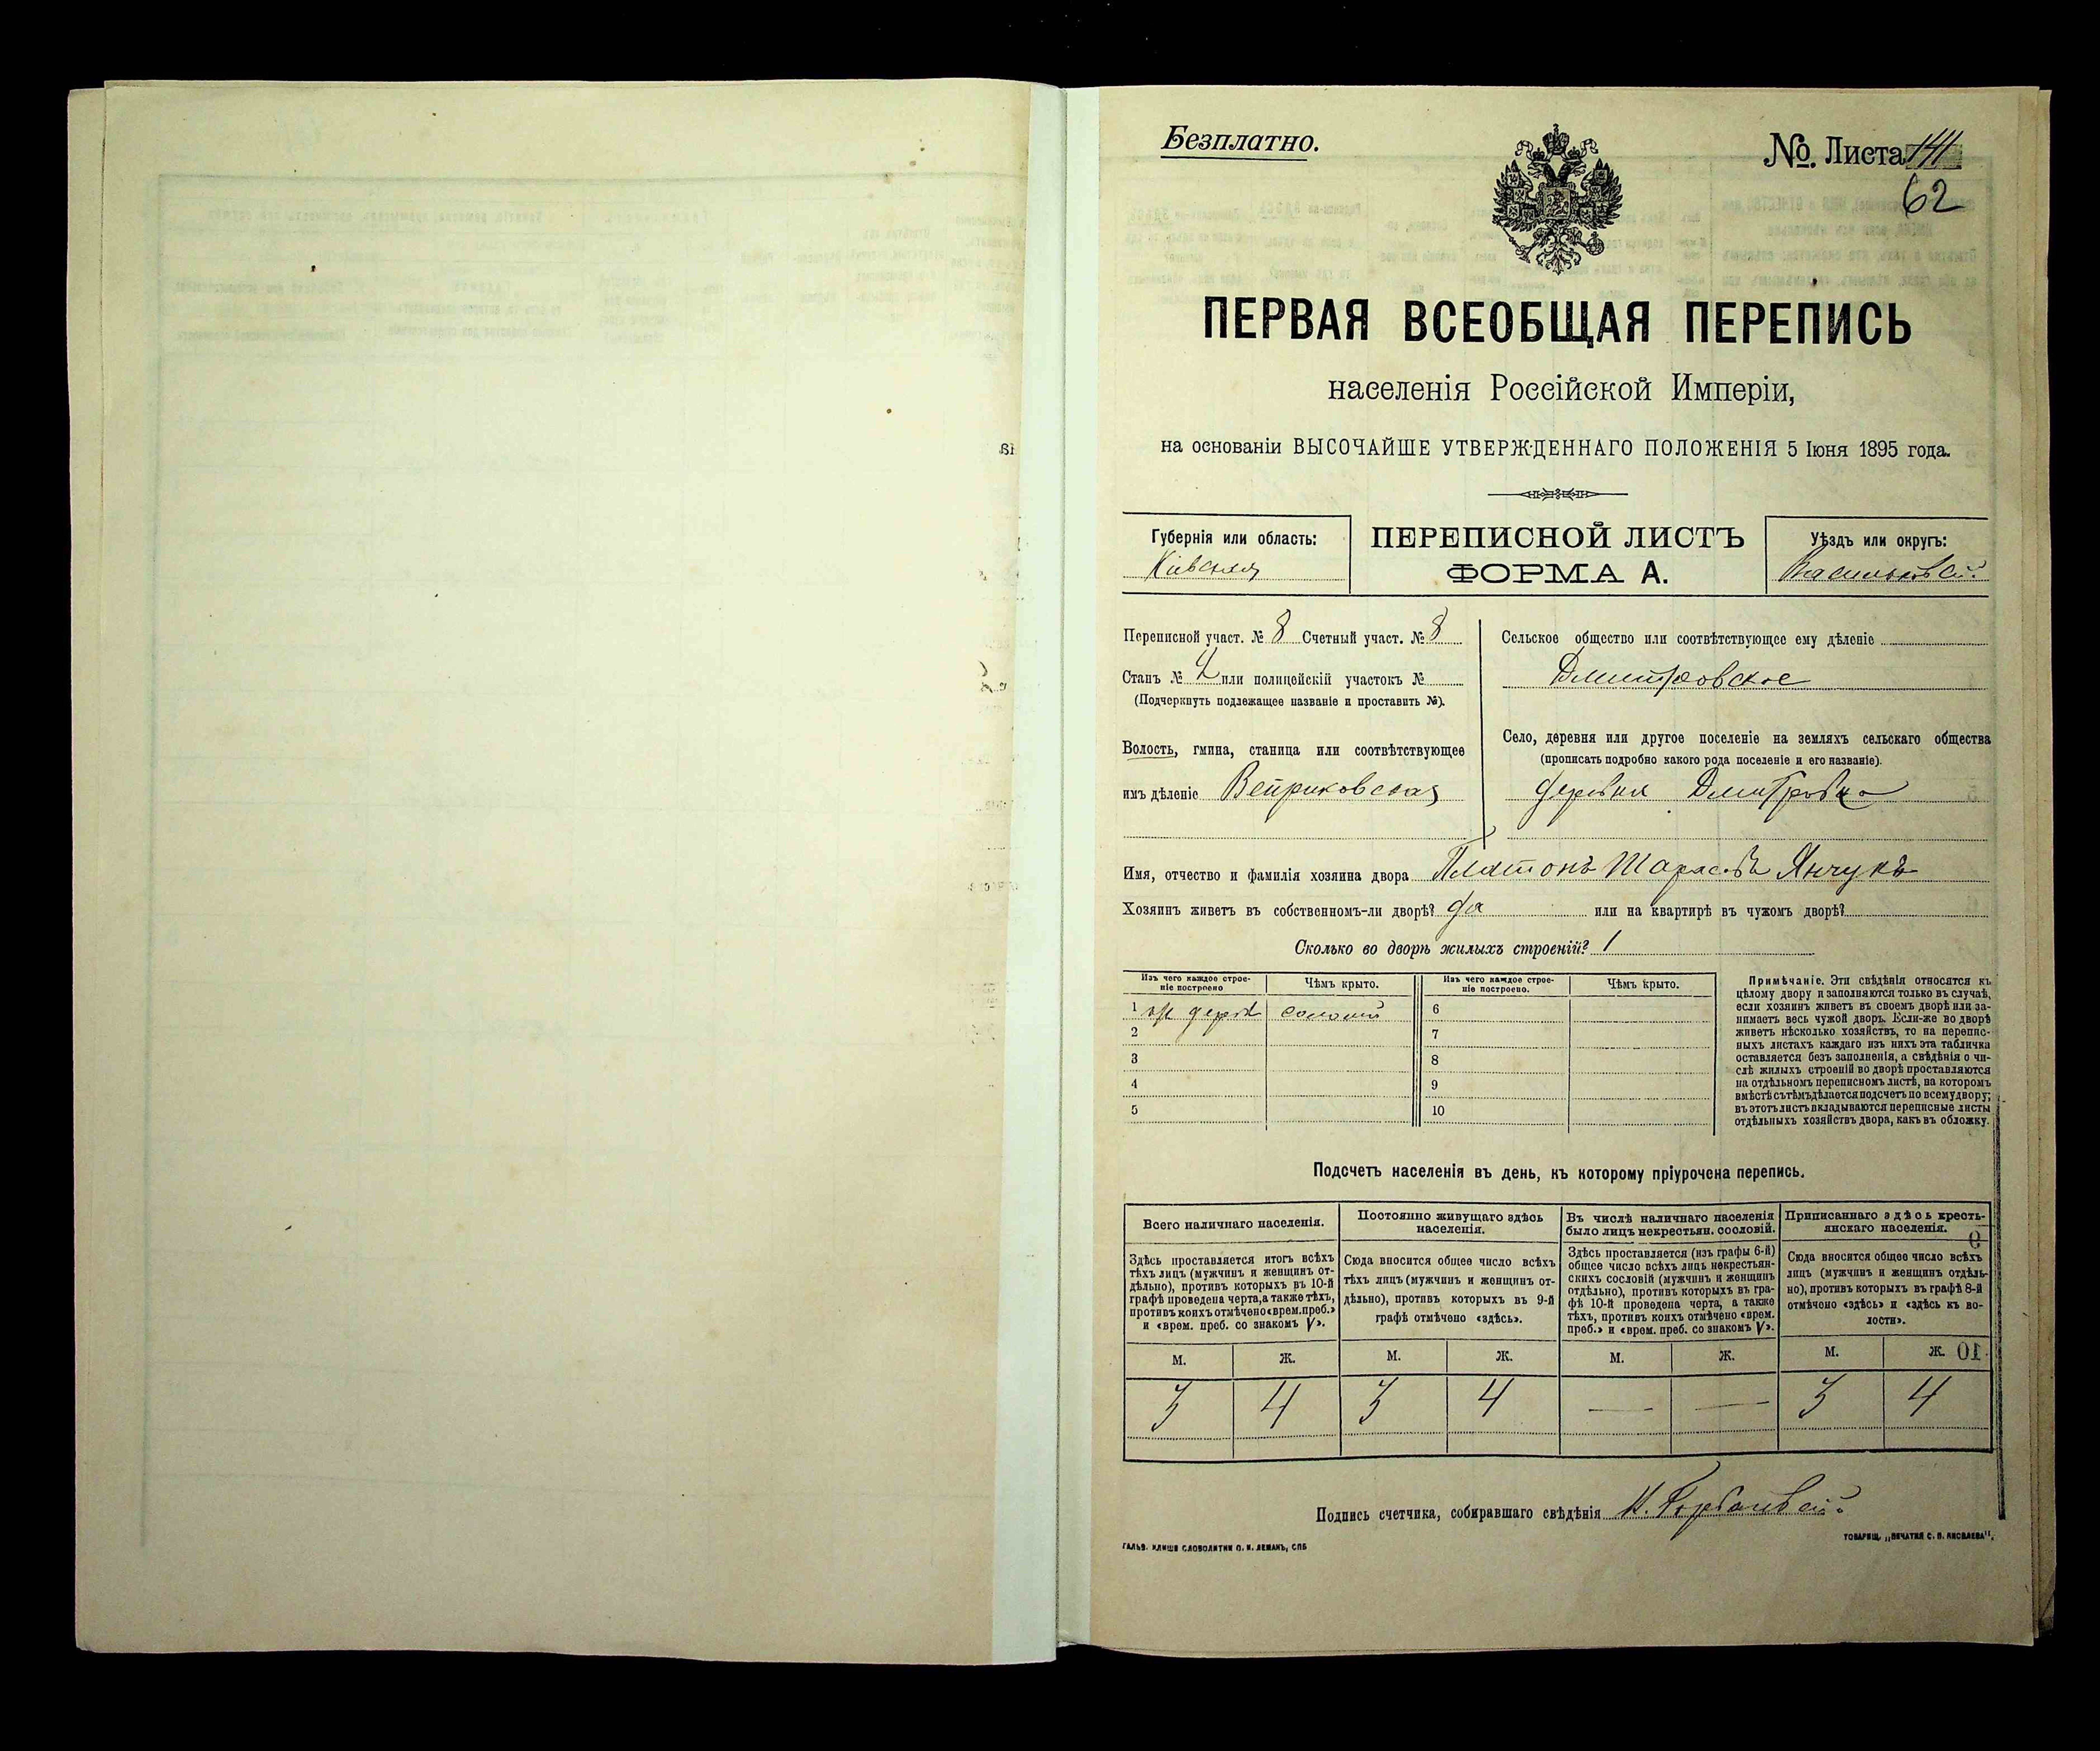 Безплатно.
№. Листа 141
62
ПЕРВАЯ ВСЕОБЩАЯ ПЕРЕПИСЬ
населенія Россійской Имперіи,
на основаніи ВЫСОЧАЙШЕ УТВЕРЖДЕННАГО ПОЛОЖЕНІЯ 5 Іюня 1895 года.
Губернія или область:
Кіевская
ПЕРЕПИСНОЙ ЛИСТЪ
ФОРМА А.
Уѣздъ или округъ:
Васильковскій
Переписной участ. № 8 Счетный участ. № 8
Станъ № 2 или полицейскій участокъ №
(Подчеркнуть подлежащее названіе и проставить №).
Волость, гмина, станица или соотвѣтствующее
имъ дѣленіе
Сельское общество или соотвѣтствующее ему дѣленіе
Дмитровское
Село, деревня или другое поселеніе на земляхъ сельскаго общества
(прописать подробно какого рода поселеніе и его названіе).
деревня Дмитровка
Имя, отчество и фамилія хозяина двора Платонъ Тарасовъ Янчукъ
Хозяинъ живетъ въ собственномъ-ли дворѣ? да или на квартирѣ въ чужомъ дворѣ?
Сколько во дворѣ жилыхъ строеній? 1
Изъ чего каждое строе-
ніе построено
Чѣмъ крыто.
Изъ чего каждое строе-
ніе построено.
Чѣмъ крыто.
1 соломой 6
2 7
3 8
4 9
5 10
Примѣчаніе. Эти свѣдѣнія относятся къ
цѣлому двору и заполняются только въ случаѣ,
если хозяинъ живетъ въ своемъ дворѣ или за-
нимаетъ весь чужой дворъ. Если-же во дворѣ
живетъ нѣсколько хозяйствъ, то на перепис-
ныхъ листахъ каждаго изъ нихъ эта табличка
оставляется безъ заполненія, а свѣдѣнія о чи-
слѣ жилыхъ строеній во дворѣ проставляются
на отдѣльномъ переписномъ листѣ, на которомъ
вмѣстѣ съ тѣмъ дѣлается подсчетъ по всему двору;
въ этотъ листъ вкладываются переписные листы
отдѣльныхъ хозяйствъ двора, какъ въ обложку.
Подсчетъ населенія въ день, къ которому пріурочена перепись.
Всего наличнаго населенія.
Здѣсь проставляется итогъ всѣхъ
тѣхъ лицъ (мужчинъ и женщинъ от-
дѣльно), противъ которыхъ въ 10-й
графѣ проведена черта, а также тѣхъ,
противъ коихъ отмѣчено «врем. преб.»
и «врем. преб. со знакомъ V».
Постоянно живущаго здѣсь
населенія.
Сюда вносится общее число всѣхъ
тѣхъ лицъ (мужчинъ и женщинъ от-
дѣльно), противъ которыхъ въ 9-й
графѣ отмѣчено «здѣсь».
Въ числѣ наличнаго населенія
было лицъ некрестьян. сословій.
Здѣсь проставляется (изъ графы 6-й)
общее число всѣхъ лицъ некрестьян-
скихъ сословій (мужчинъ и женщинъ
отдѣльно), противъ которыхъ въ гра-
фѣ 10-й проведена черта, а также
тѣхъ, противъ коихъ отмѣчено «врем.
преб.» и «врем. преб. со знакомъ V».
Приписаннаго здѣсь кресть-
янскаго населенія.
Сюда вносится общее число всѣхъ
лицъ (мужчинъ и женщинъ отдѣль-
но), противъ которыхъ въ графѣ 8-й
отмѣчено «здѣсь» и «здѣсь въ во-
лости».
М. Ж. М. Ж. М. Ж. М. Ж.
3 4 3 4 — — 3 4
Подпись счетчика, собиравшаго свѣдѣнія
ГАЛЬВ. КЛИШЕ СЛОВОЛИТНИ О. И. ЛЕМАНЪ, СПБ
ТОВАРИЩ. „ПЕЧАТНЯ С. П. ЯКОВЛЕВА“.